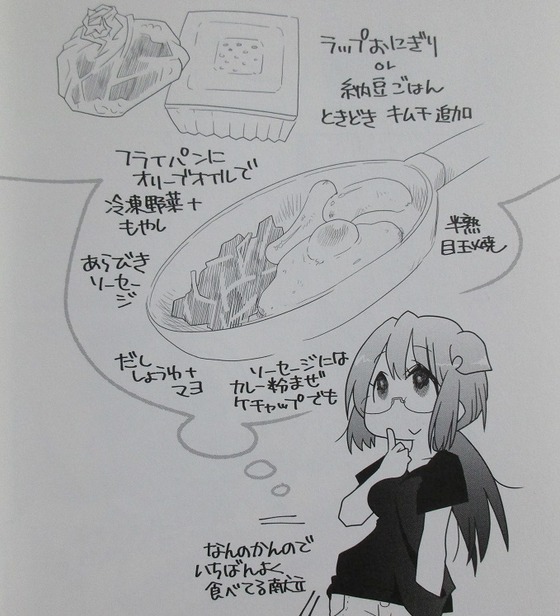 ラップおにぎり
or
納豆ごはん
ときどき キムチ追加
フライパンに
オリーブオイルで
冷凍野菜+
もやし
あらびき
ソーセー
ジ
半熟
目玉焼
だし
しょうゆ+
マヨ
ソーセージには
カレー粉まぜ
ケチャップでも
なんのかんので
いちばんよく
食べてる献立